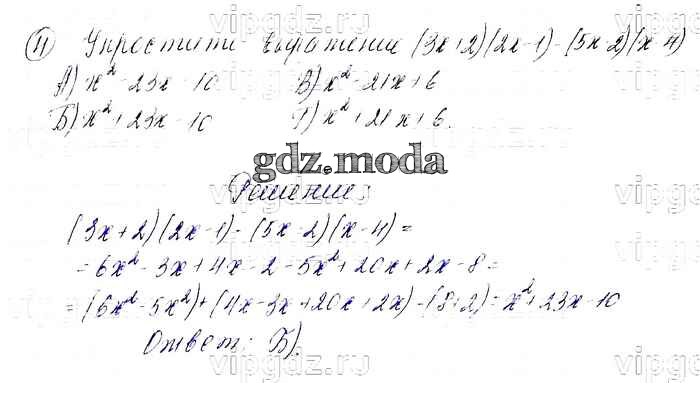 11 Упростити выражение (3x+2)(2x-1)-(5x-2)(x-4)
А) x²-23x-10 В) x²-21x+6
Б) x²+23x-10 Г) x²+21x+6.
gdz.moda
Решение:
(3x+2)(2x-1)-(5x-2)(x-4)=
=6x²-3x+4x-2-5x²+20x+2x-8=
=(6x²-5x²)+(4x-3x+20x+2x)-(8+2)=x²+23x-10
Ответ: Б).
vipgdz.ru